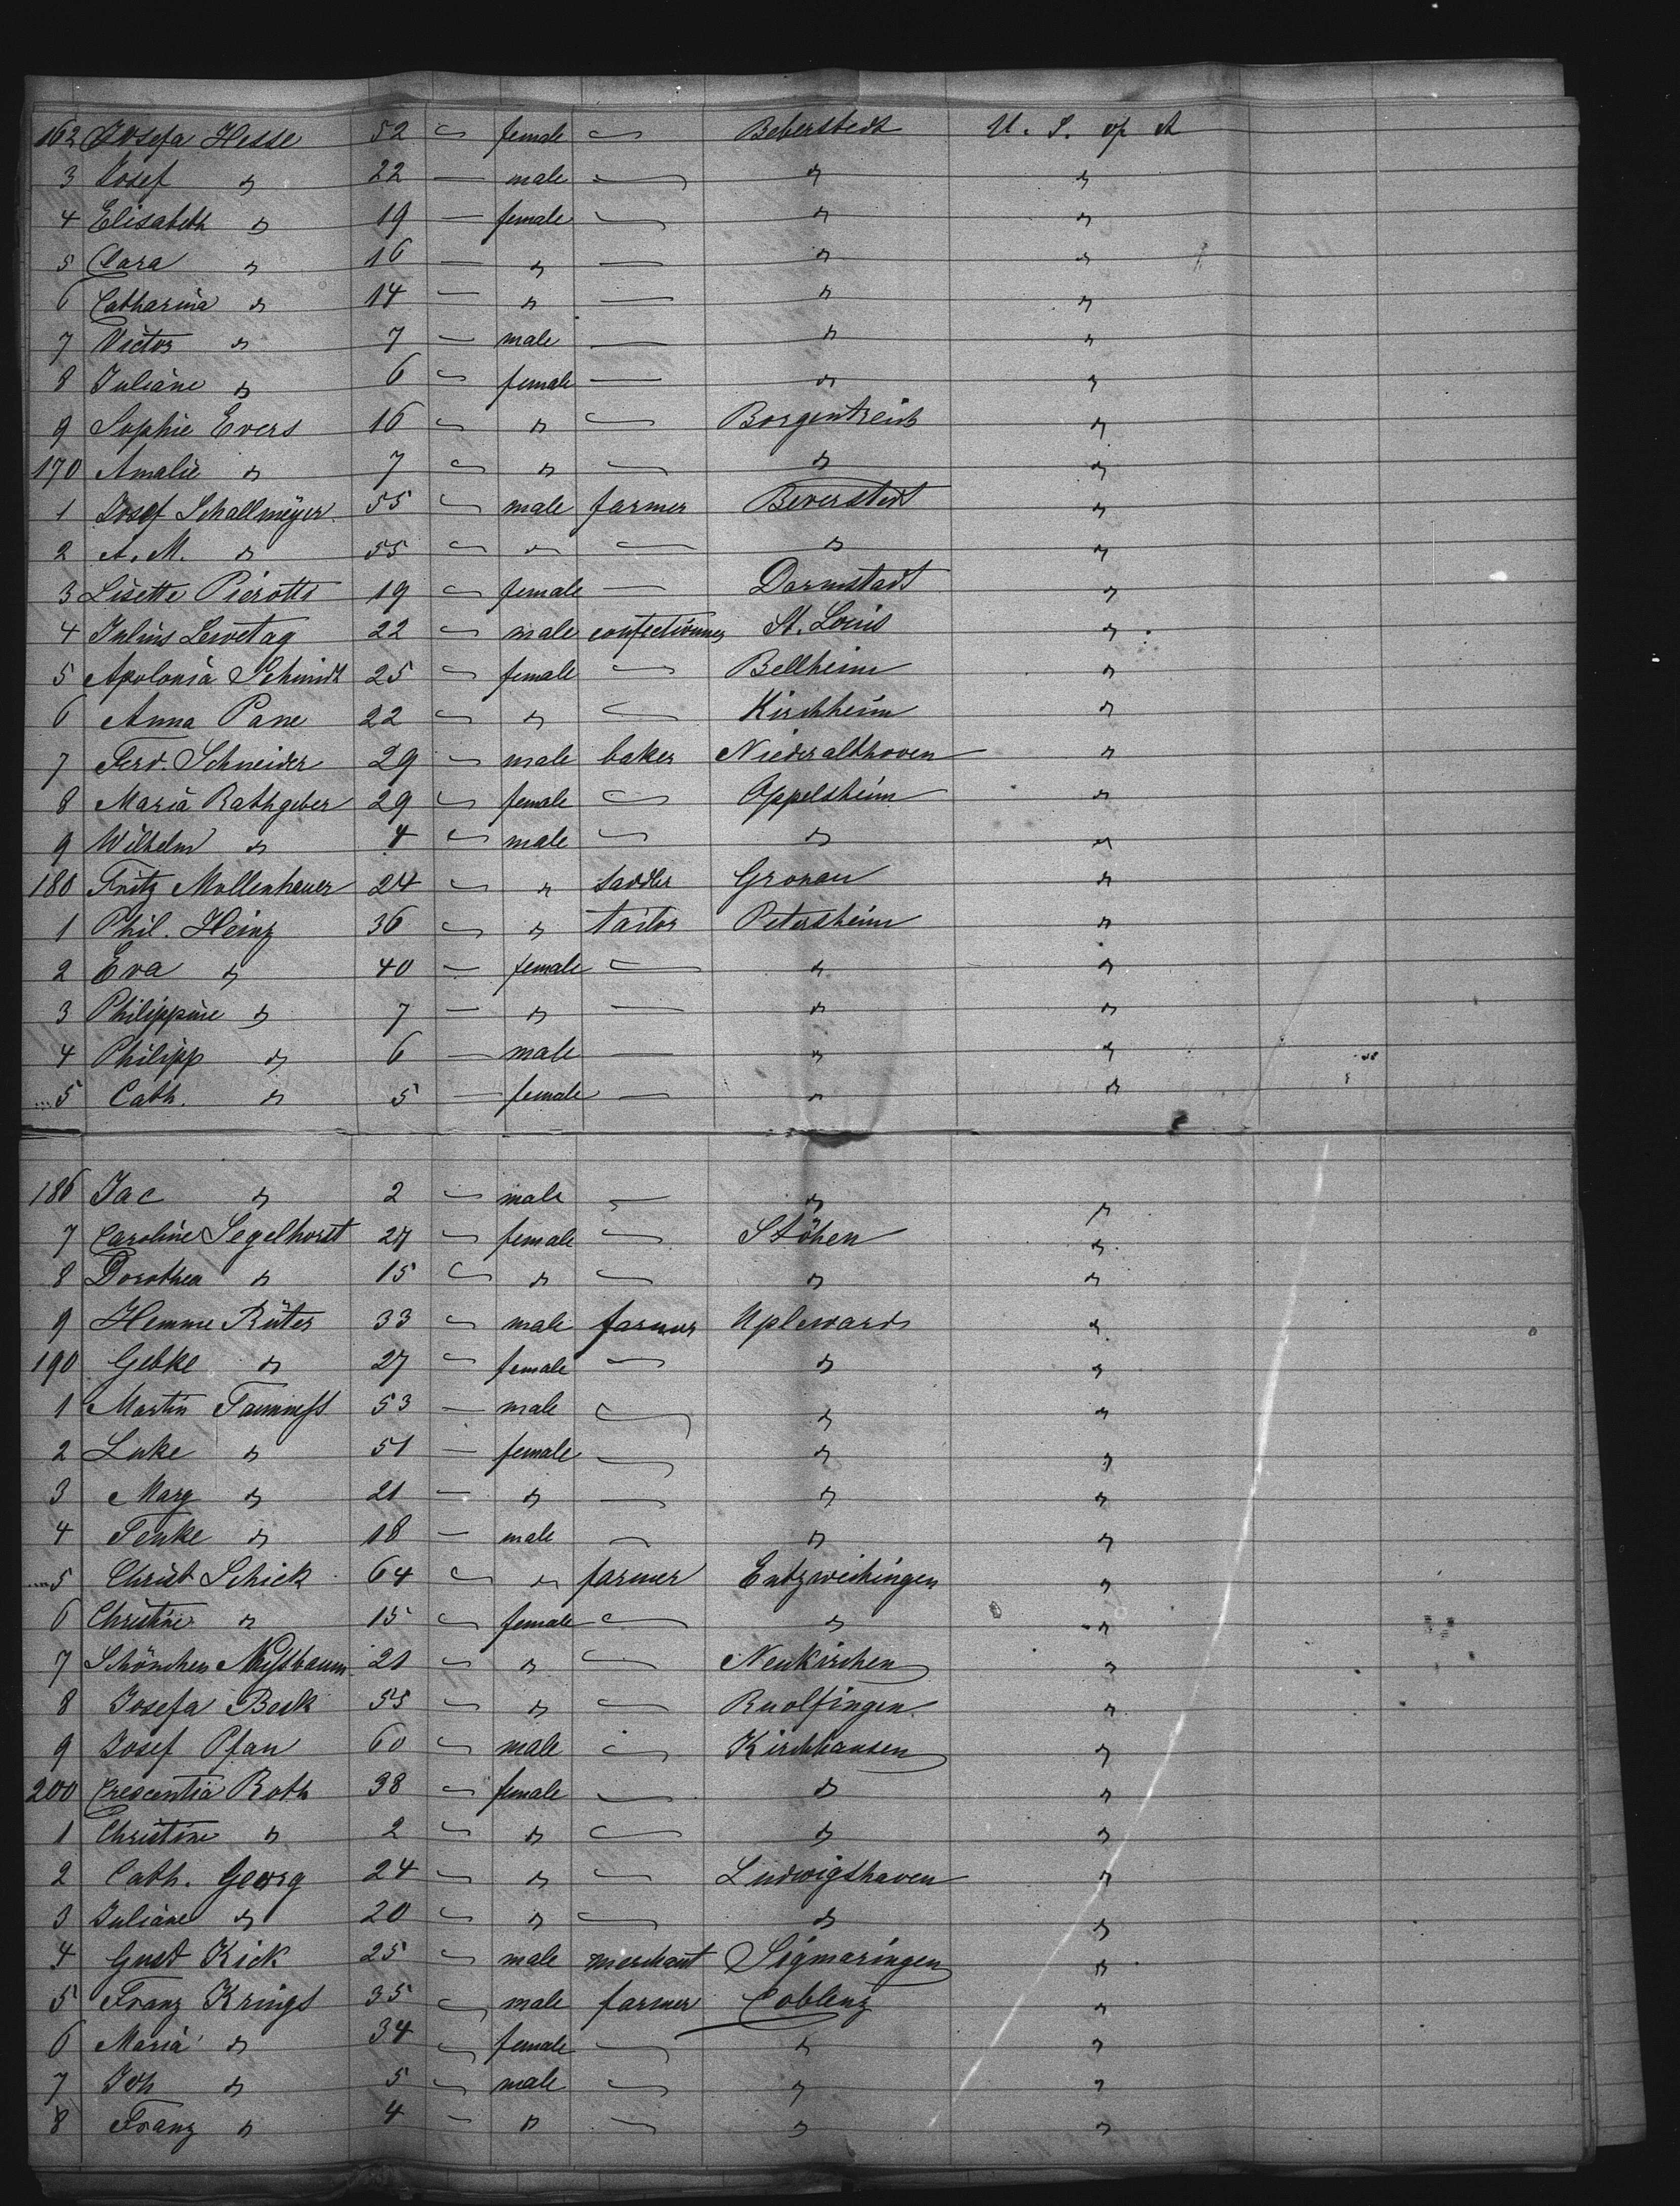 162 Josefa Hesse 52 — female — Beberstedt U. S. of A
3 Josef " 22 — male — " "
4 Elisabeth " 19 — female — " "
5 Clara " 16 — " — " "
6 Catharina " 14 — " — " "
7 Victor " 7 — male — " "
8 Juliane " 6 — female — " "
9 Sophie Evers 16 — " — Borgentreich "
170 Amalie " 7 — " — " "
1 Josef Schallmeÿer 55 — male farmer Beverstedt "
2 A. M. " 55 — " — " "
3 Lisette Pierotti 19 — female — Darmstadt "
4 Julius Lewetag 22 — male confectioner St. Louis "
5 Apolonia Schmidt 25 — female — Bellheim "
6 Anna Pane 22 — " — Kirchheim "
7 Ferd. Schneider 29 — male baker Niederalthoven "
8 Maria Rathgeber 29 — female — Appelsheim "
9 Wilhelm " 4 — male — " "
180 Fritz Mollenhauer 24 — " saddler Gronau "
1 Phil. Heinz 36 — " tailor Petersheim "
2 Eva " 40 — female — " "
3 Philippine " 7 — " — " "
4 Philipp " 6 — male — " "
5 Cath. " 5 — female — " "
186 Jac " 2 — male — " "
7 Caroline Segelhorst 27 — female — Stöhen "
8 Dorothea " 15 — " — " "
9 Hemme Rüter 33 — male farmer Uplewards "
190 Gebke " 27 — female — " "
1 Martin 53 — male — " "
2 Luke " 51 — female — " "
3 Marg " 21 — " — " "
4 Tenke " 18 — male — " "
5 Christ Schick 64 — " farmer Entzweihingen "
6 Christine " 15 — female — " "
7 Schönchen Nußbaum 21 — " — Neukirchen "
8 Josefa Beck 55 — " — Ruolfingen "
9 Josef Pfau 60 — male — Kirchhausen "
200 Crescentia Roth 38 — female — " "
1 Christine " 2 — " — " "
2 Cath. Georg 24 — " — Ludwigshaven "
3 Juliane " 20 — " — " "
4 Gust Kick 25 — male merchant Sigmaringen "
5 Franz Krings 35 — male farmer Coblenz "
6 Maria " 34 — female — " "
7 Joh " 5 — male — " "
8 Franz " 4 — " — " "